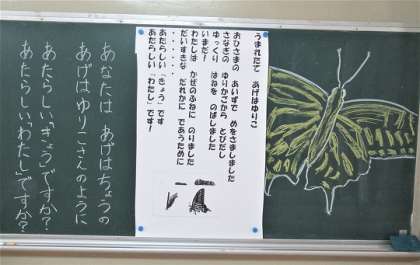 うまれたて　あげはゆりこ
おひさまの　あいずで　めをさましました
さなぎの　ゆりかごから　とびだし
ゆっくり　はねを　のばしました
いまだ！
わたしは　かぜのふねに　のりました
だいすきな　だれかに　であうために
・・・・・・
あたらしい「きょう」です
あたらしい「わたし」です！
あなたは　あげはちょうの
あげはゆりこさんのように
あたらしい「きょう」ですか？
あたらしい「わたし」ですか？